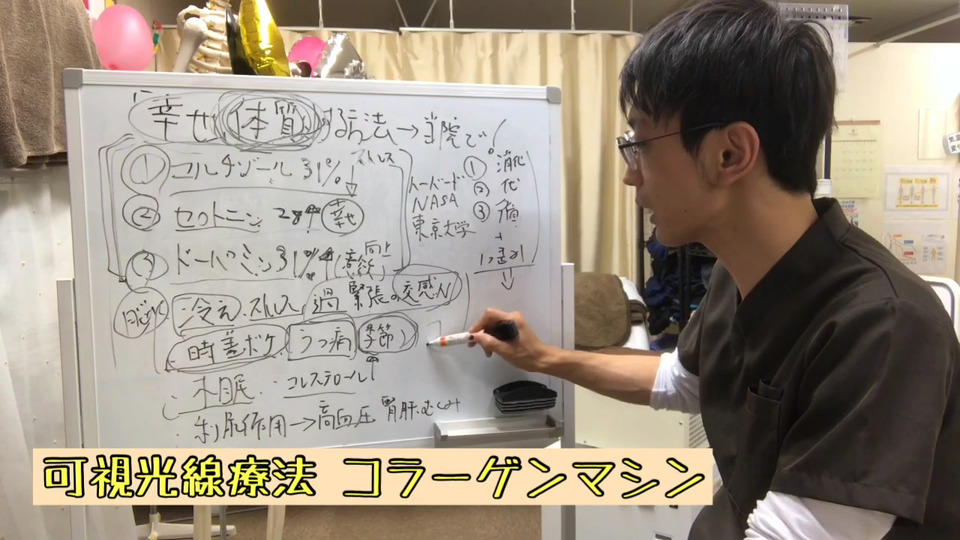 幸せ体質
する方法→当院で!
① コルチゾール 31% ストレス
② セロトニン 28% 幸せ
③ ドーパミン 31% 意欲向上
① 消化
② 代
③
ハーバード
NASA
東京大学
冷え ストレス 過緊張の交感N
時差ボケ うつ病 季節
・不眠 ・コレステロール↑
・利尿作用→高血圧 腎肝むくみ
可視光線療法 コラーゲンマシン